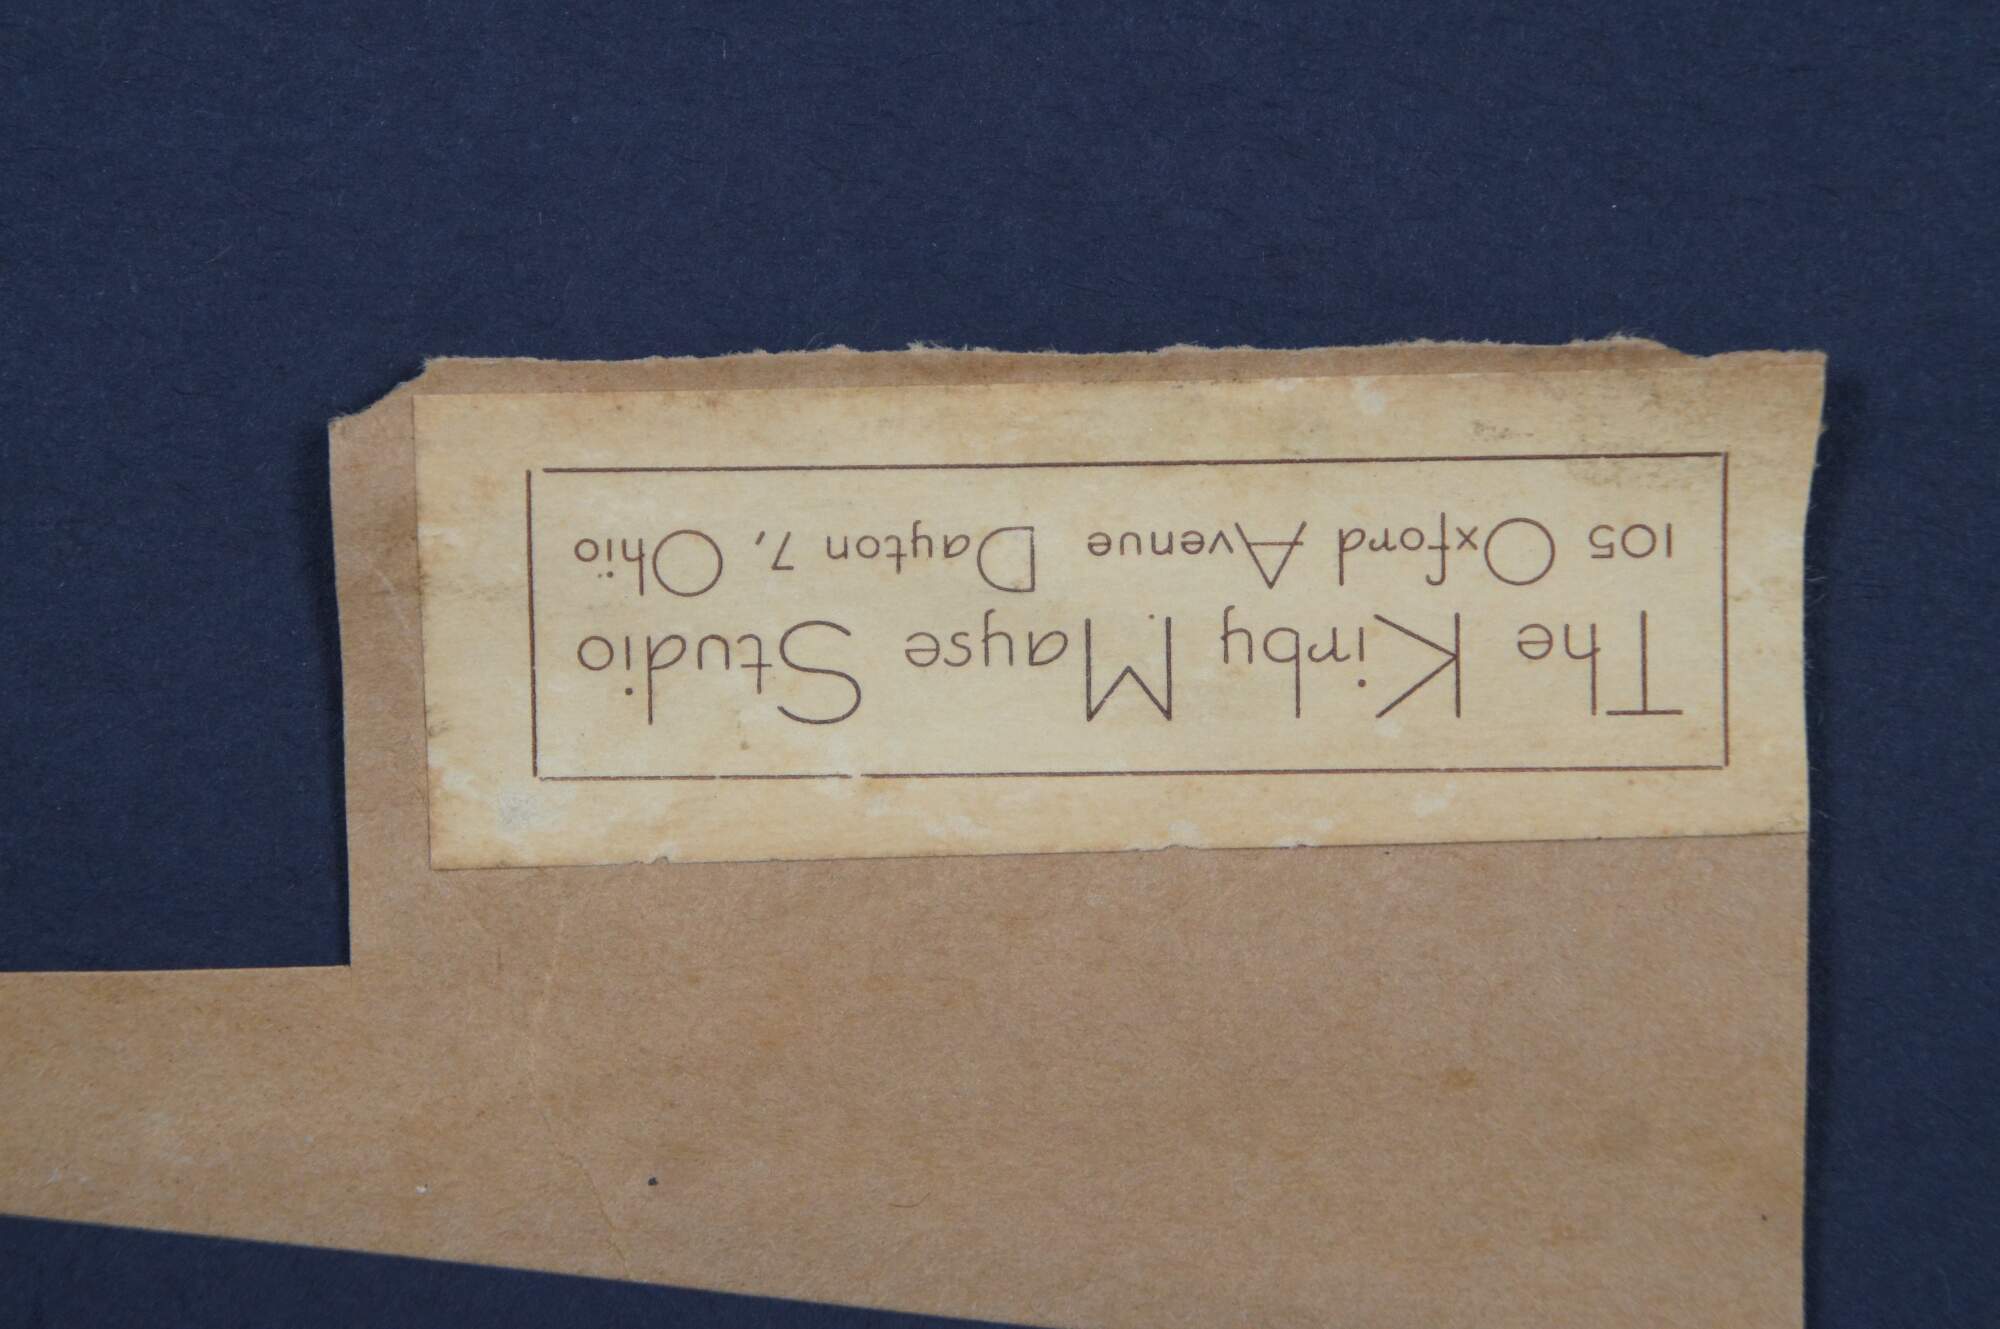 The Kirby Mayse Studio
105 Oxford Avenue Dayton 7, Ohio